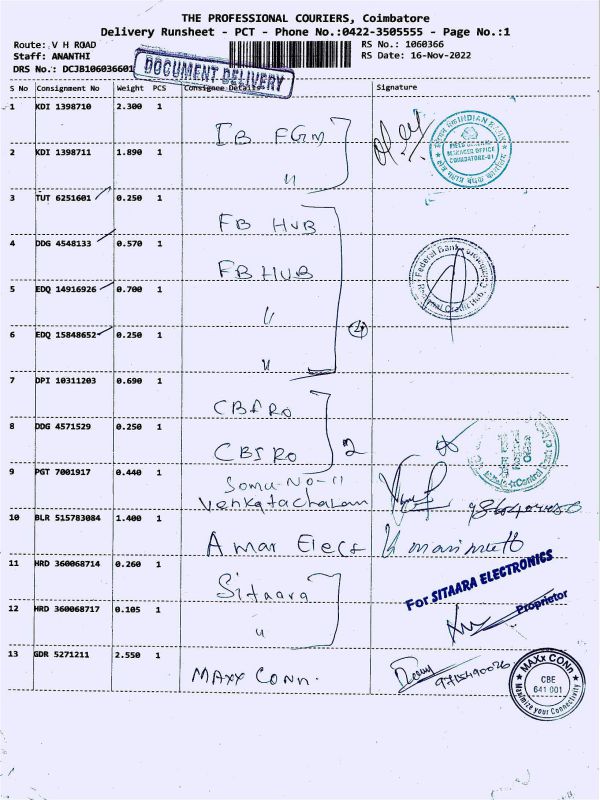 THE PROFESSIONAL COURIERS, Coimbatore
Delivery Runsheet - PCT - Phone No.:0422-3505555 - Page No.:1
Route: V H ROAD RS No.: 1060366
Staff: ANANTHI RS Date: 16-Nov-2022
DRS No.: DCJB106036601
DOCUMENT DELIVERY
S No Consignment No Weight PCS Consignee Details Signature
1 KDI 1398710 2.300 1 IB FGM
INDIAN BANK
COIMBATORE-01
2 KDI 1398711 1.890 1 "
3 TUT 6251601 0.250 1 FB HUB
4 DDG 4548133 0.570 1 FB HUB
Federal Bank
5 EDQ 14916926 0.700 1 "
6 EDQ 15848652 0.250 1 "
4
7 DPI 10311203 0.690 1 CBI RO
8 DDG 4571529 0.250 1 CBI RO
2
9 PGT 7001917 0.440 1 Somu-No-11
Venkatachalam
10 BLR 515783084 1.400 1 Amar Elecs K marimuttu
11 HRD 360068714 0.260 1 Sitaara
For SITAARA ELECTRONICS
Proprietor
12 HRD 360068717 0.105 1 "
13 GDR 5271211 2.550 1 MAXX CONN.
9715490026
MAXX CONN
CBE
641 001
Maximize your Connectivity